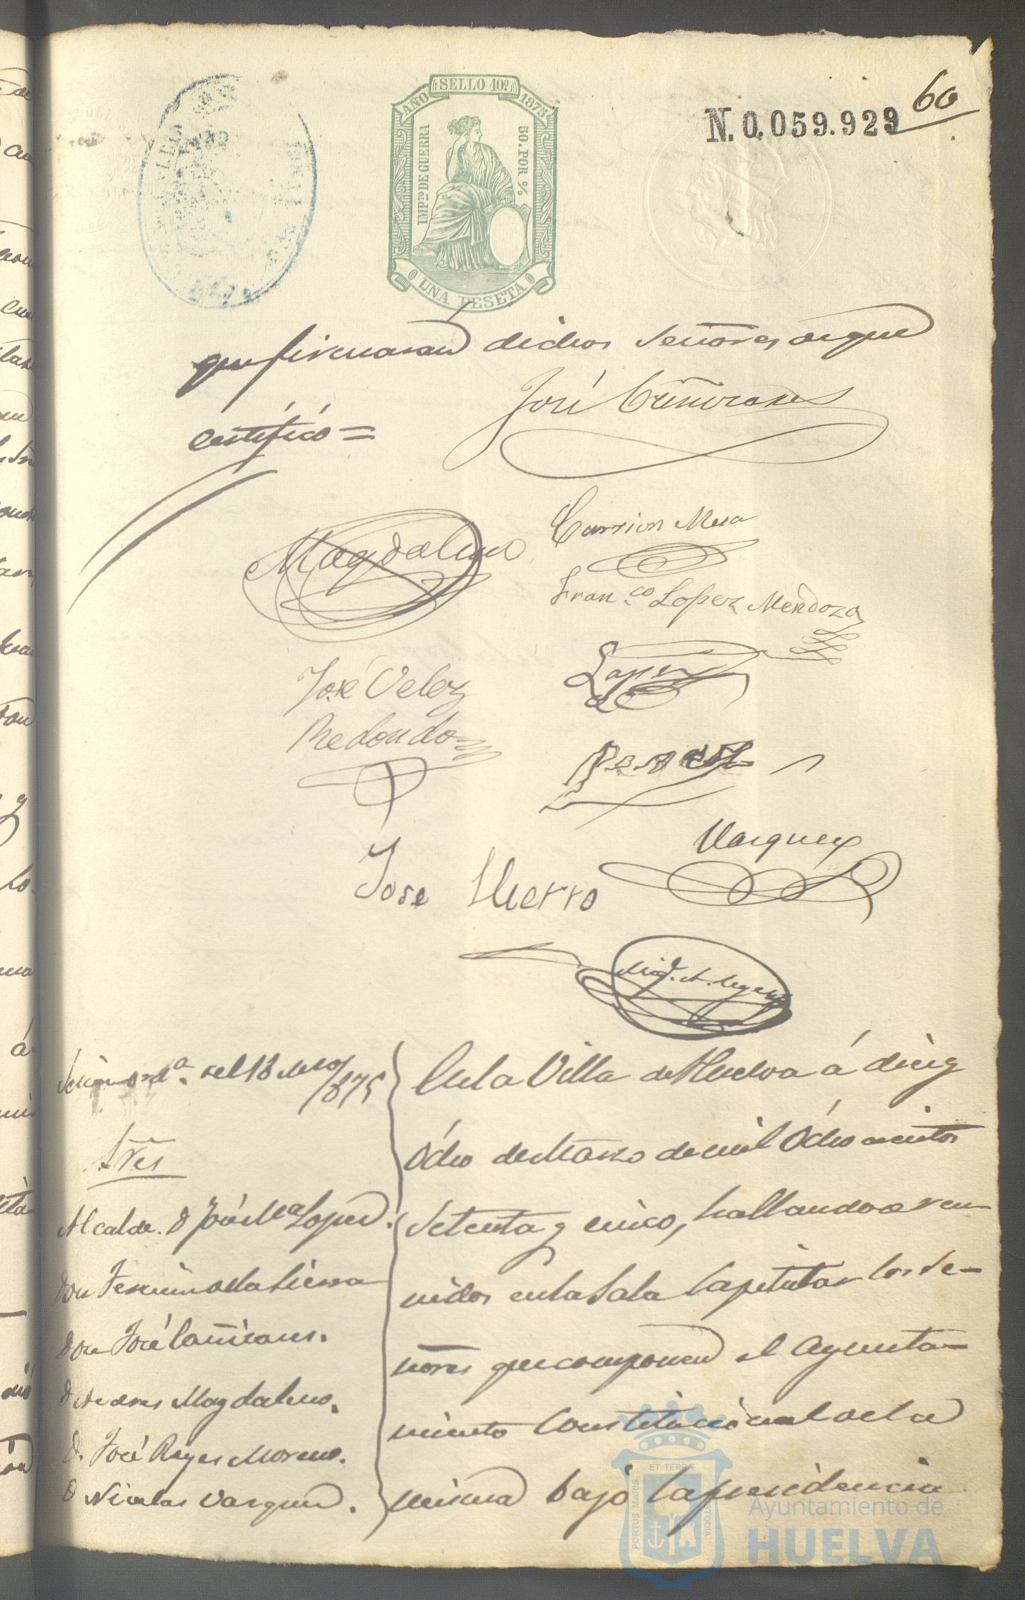 60
N. 0,059.929
AÑO SELLO 10º 1875
IMPTO DE GUERRA
50. POR %
UNA PESETA
que firmaran dichos Señores de que
certifico=
José Cañizares
Magdaleno
Carrion Mesa
Fran.co Lopez Mendoza
José Velez
Redondo
Lopez
Vazquez
Jose Hierro
Sesion ord.a del 18 Marzo
1875
Sres
Alcalde. D José M.a Lopez.
Don Fermin de la Sierra
Don José Cañizares.
D Andres Magdaleno.
D. José Reyes Moreno.
D Nicolas Vazquez.
En la Villa de Huelva á diez y
Ocho de Marzo de mil Ocho cientos
Setenta y cinco, hallandose reu-
nidos en la Sala Capitular los Se-
ñores que componen el Ayunta-
miento Constitucional de la
misma bajo la presidencia
ET TERRAE
PORTUS MARIS
CUSTODIA
Ayuntamiento de
HUELVA